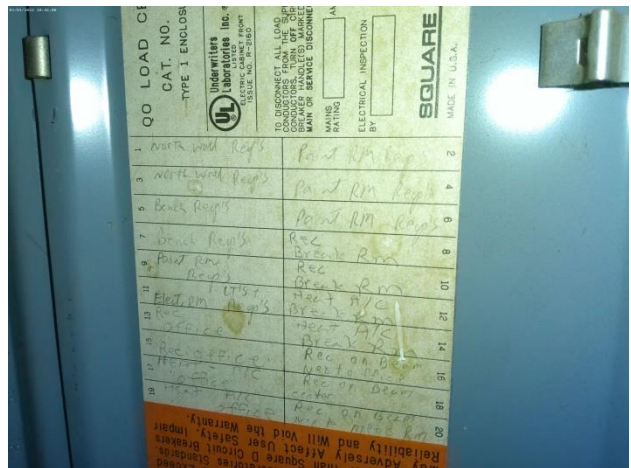 QO LOAD CE
CAT. NO.
TYPE 1 ENCLOS
UL
Underwriters
Laboratories Inc.
LISTED
ELECTRIC CABINET FRONT
ISSUE NO. R-2160
TO DISCONNECT ALL LOAD
CONDUCTORS FROM THE SUP
CONDUCTORS, TURN OFF CIR
BREAKER HANDLE(S) MARKED
MAIN OR SERVICE DISCONNE
MAINS
RATING
AM
ELECTRICAL INSPECTION
BY
SQUARE
MADE IN U.S.A.
1 North Wall Recp's
Paint RM Recp 2
3 North Wall Recp's
Paint RM Recp's 4
5 Bench Recp's
Paint RM Recp's 6
7 Bench Recp's
Rec
Break Rm 8
9 Paint RM
Recp's
Rec
Break RM 10
11
Heat A/C
Break Rm 12
13 Elect RM Recp's
Rec
office
Heat A/C
Break RM 14
15 Rec office
Rec on Beam 16
17
A/C
office
Rec on Beam
18
19 Heat A/C
office
Rec on Beam
RM 20
Exceed
ratories Standards.
han Square D Circuit Breakers
ay Adversely Affect User Safety, Impair
Reliability and Will Void the Warranty.